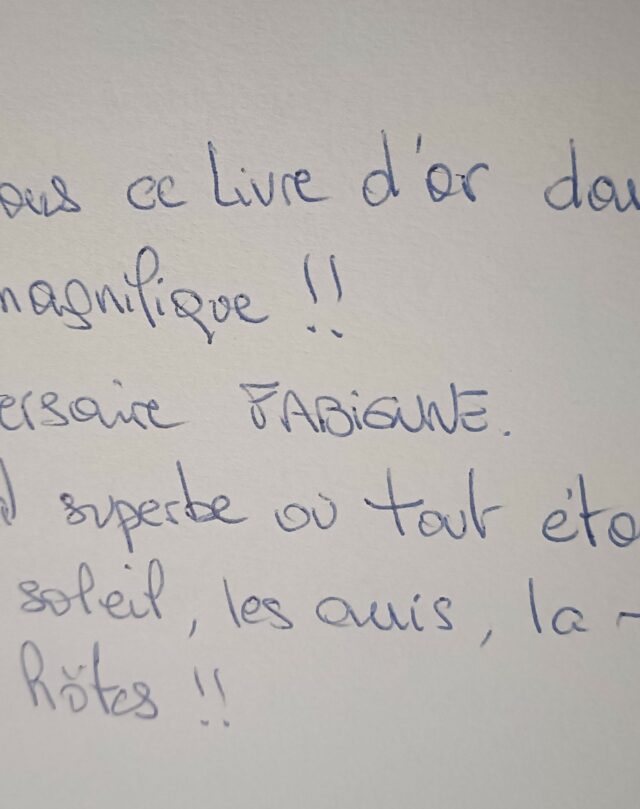 ous ce Livre d'or dou
magnifique !!
ersaire FABIENNE.
superbe où tout éta
soleil, les amis, la
hôtes !!